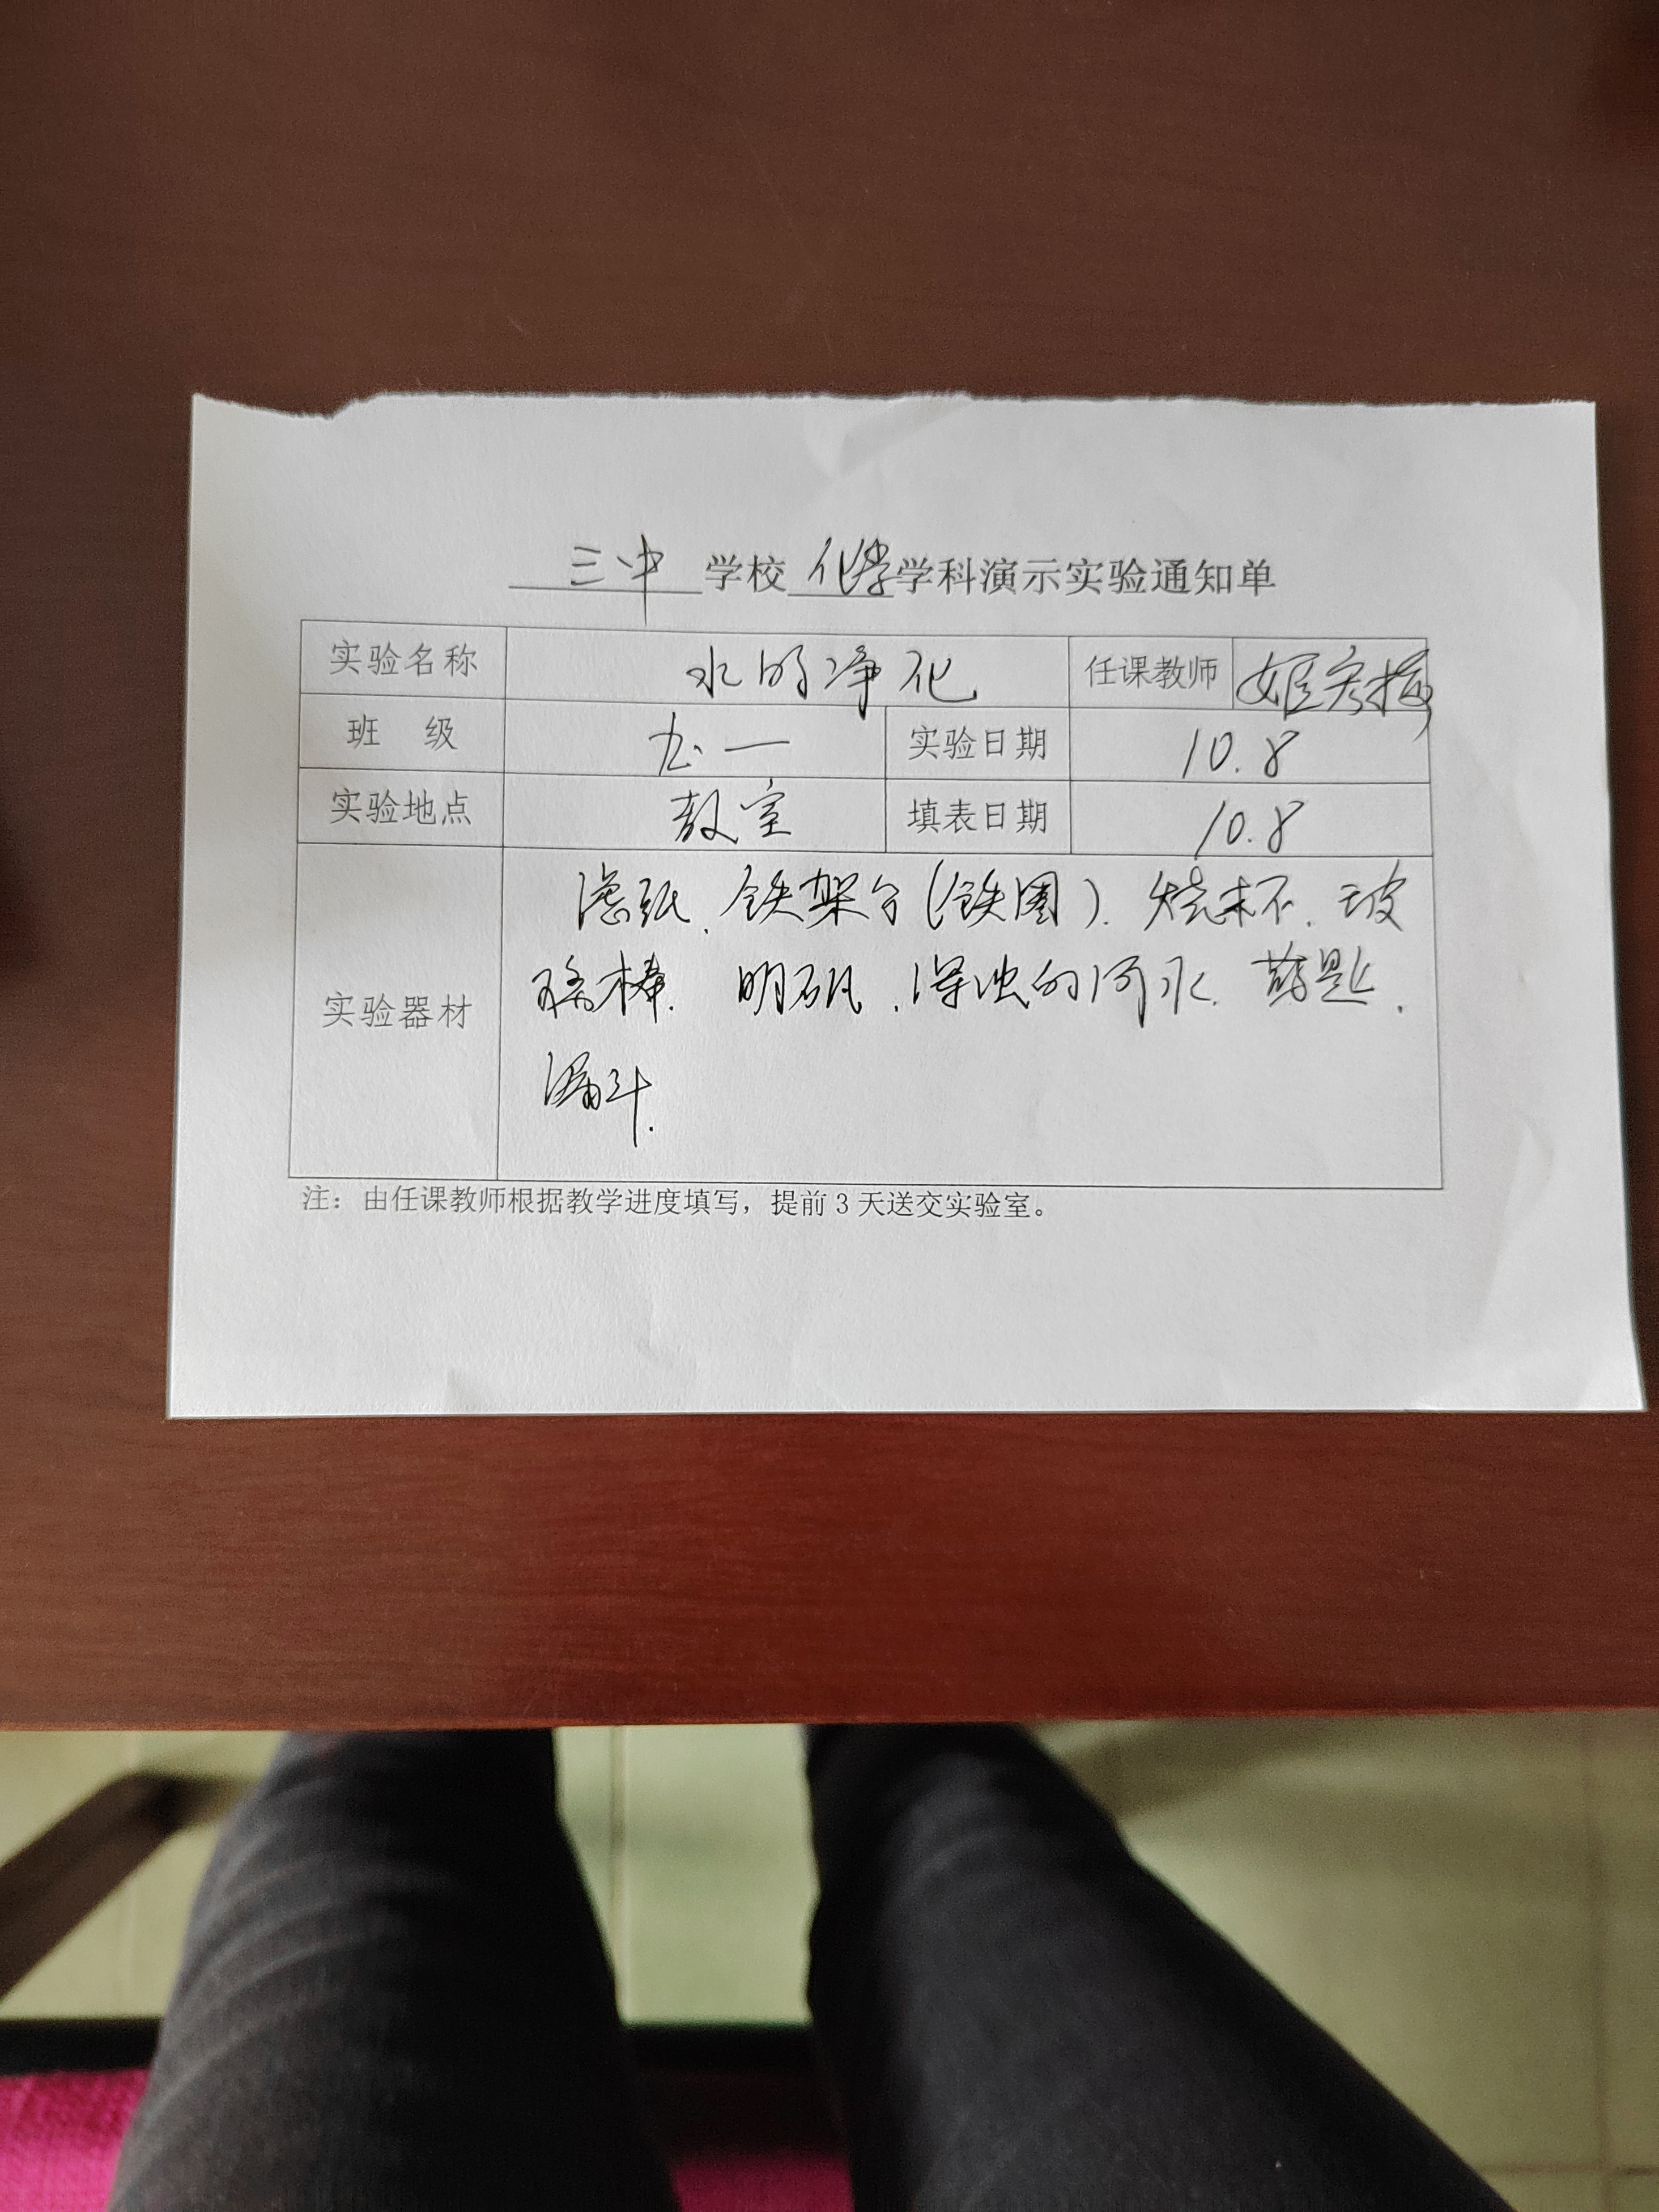 三中 学校 化学 学科演示实验通知单
实验名称 水的净化 任课教师 姬宏梅
班 级 九一 实验日期 10.8
实验地点 教室 填表日期 10.8
实验器材
滤纸、铁架台(铁圈)、烧杯、玻
璃棒、明矾、浑浊的河水、药匙、
漏斗.
注：由任课教师根据教学进度填写，提前3天送交实验室。